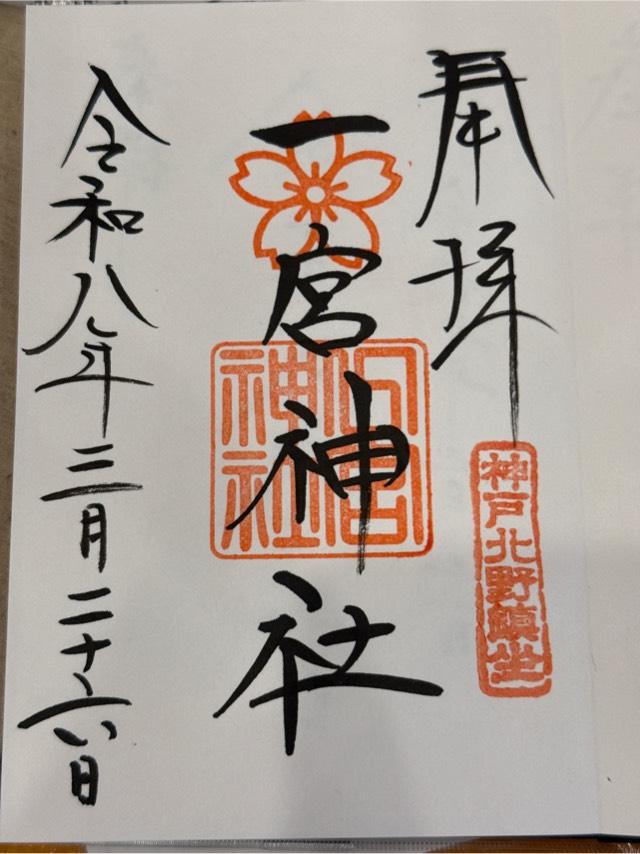 奉拝
神戸北野鎮坐
一宮神社
一宮神社
令和八年三月二十六日